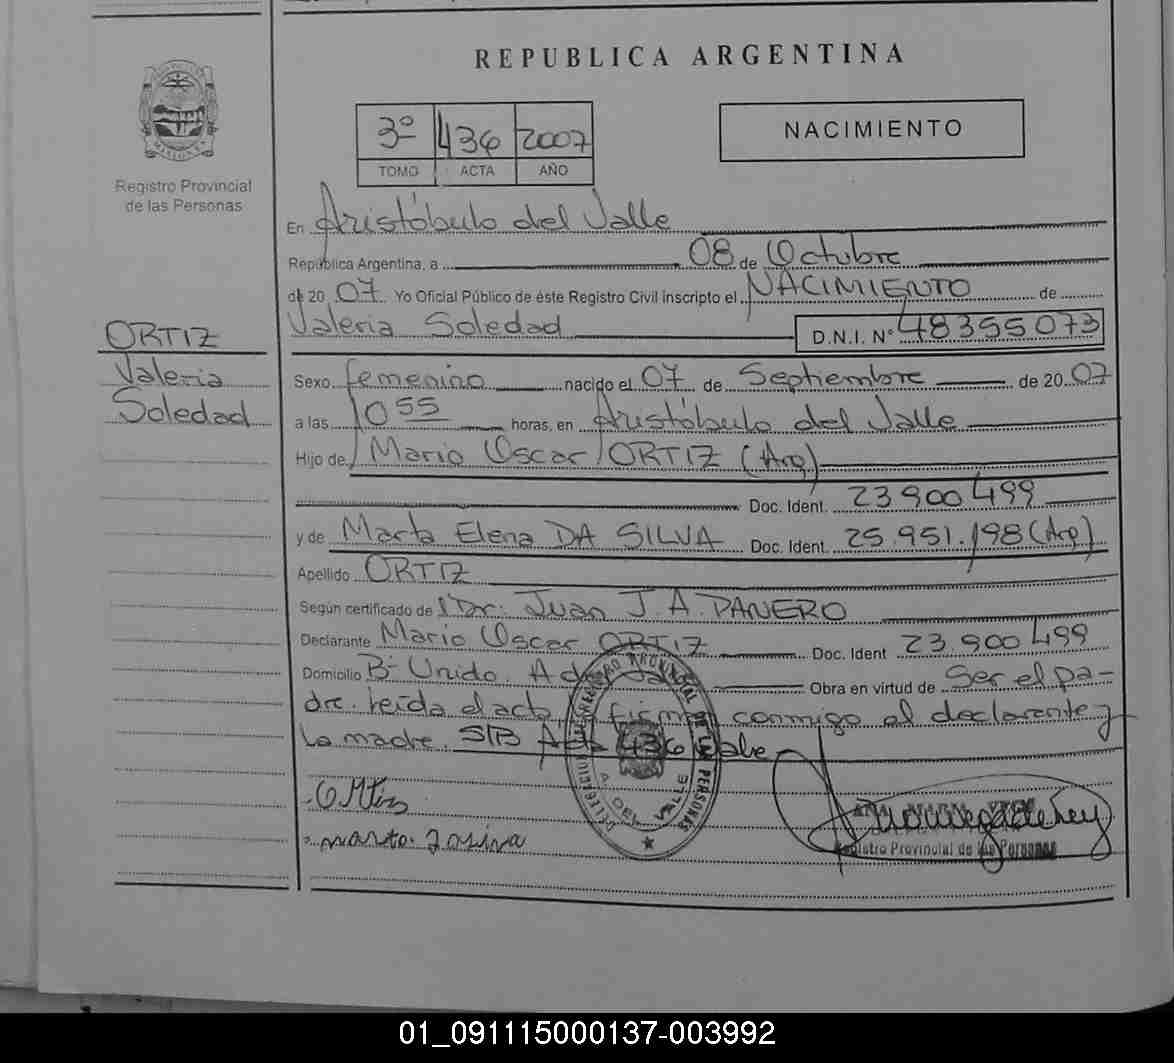 REPUBLICA ARGENTINA
3º 436 2007
TOMO ACTA AÑO
NACIMIENTO
MISIONES
Registro Provincial
de las Personas
ORTIZ
Valeria
Soledad
En Aristóbulo del Valle
República Argentina, a 08 de Octubre
de 20 07 Yo Oficial Público de éste Registro Civil inscripto el NACIMIENTO de
Valeria Soledad D.N.I. Nº 48355073
Sexo femenino nacido el 07 de Septiembre de 20 07
a las 10 55 horas, en Aristóbulo del Valle
Hijo de Mario Oscar ORTIZ (Arg)
Doc. Ident. 23 900 499
y de Marta Elena DA SILVA Doc. Ident. 25.951.198 (Arg)
Apellido ORTIZ
Según certificado de Dr: Juan J. A. DANERO
Declarante Mario Oscar ORTIZ Doc. Ident 23 900 499
Domicilio Bº Unido. A del Valle Obra en virtud de Ser el pa-
dre. Leída el acta firma conmigo el declarante y
la madre. S/B Acta 436 Vale
DELEGACION REGISTRO PROVINCIAL DE LAS PERSONAS
A. DEL VALLE
Registro Provincial de las Personas
01_091115000137-003992